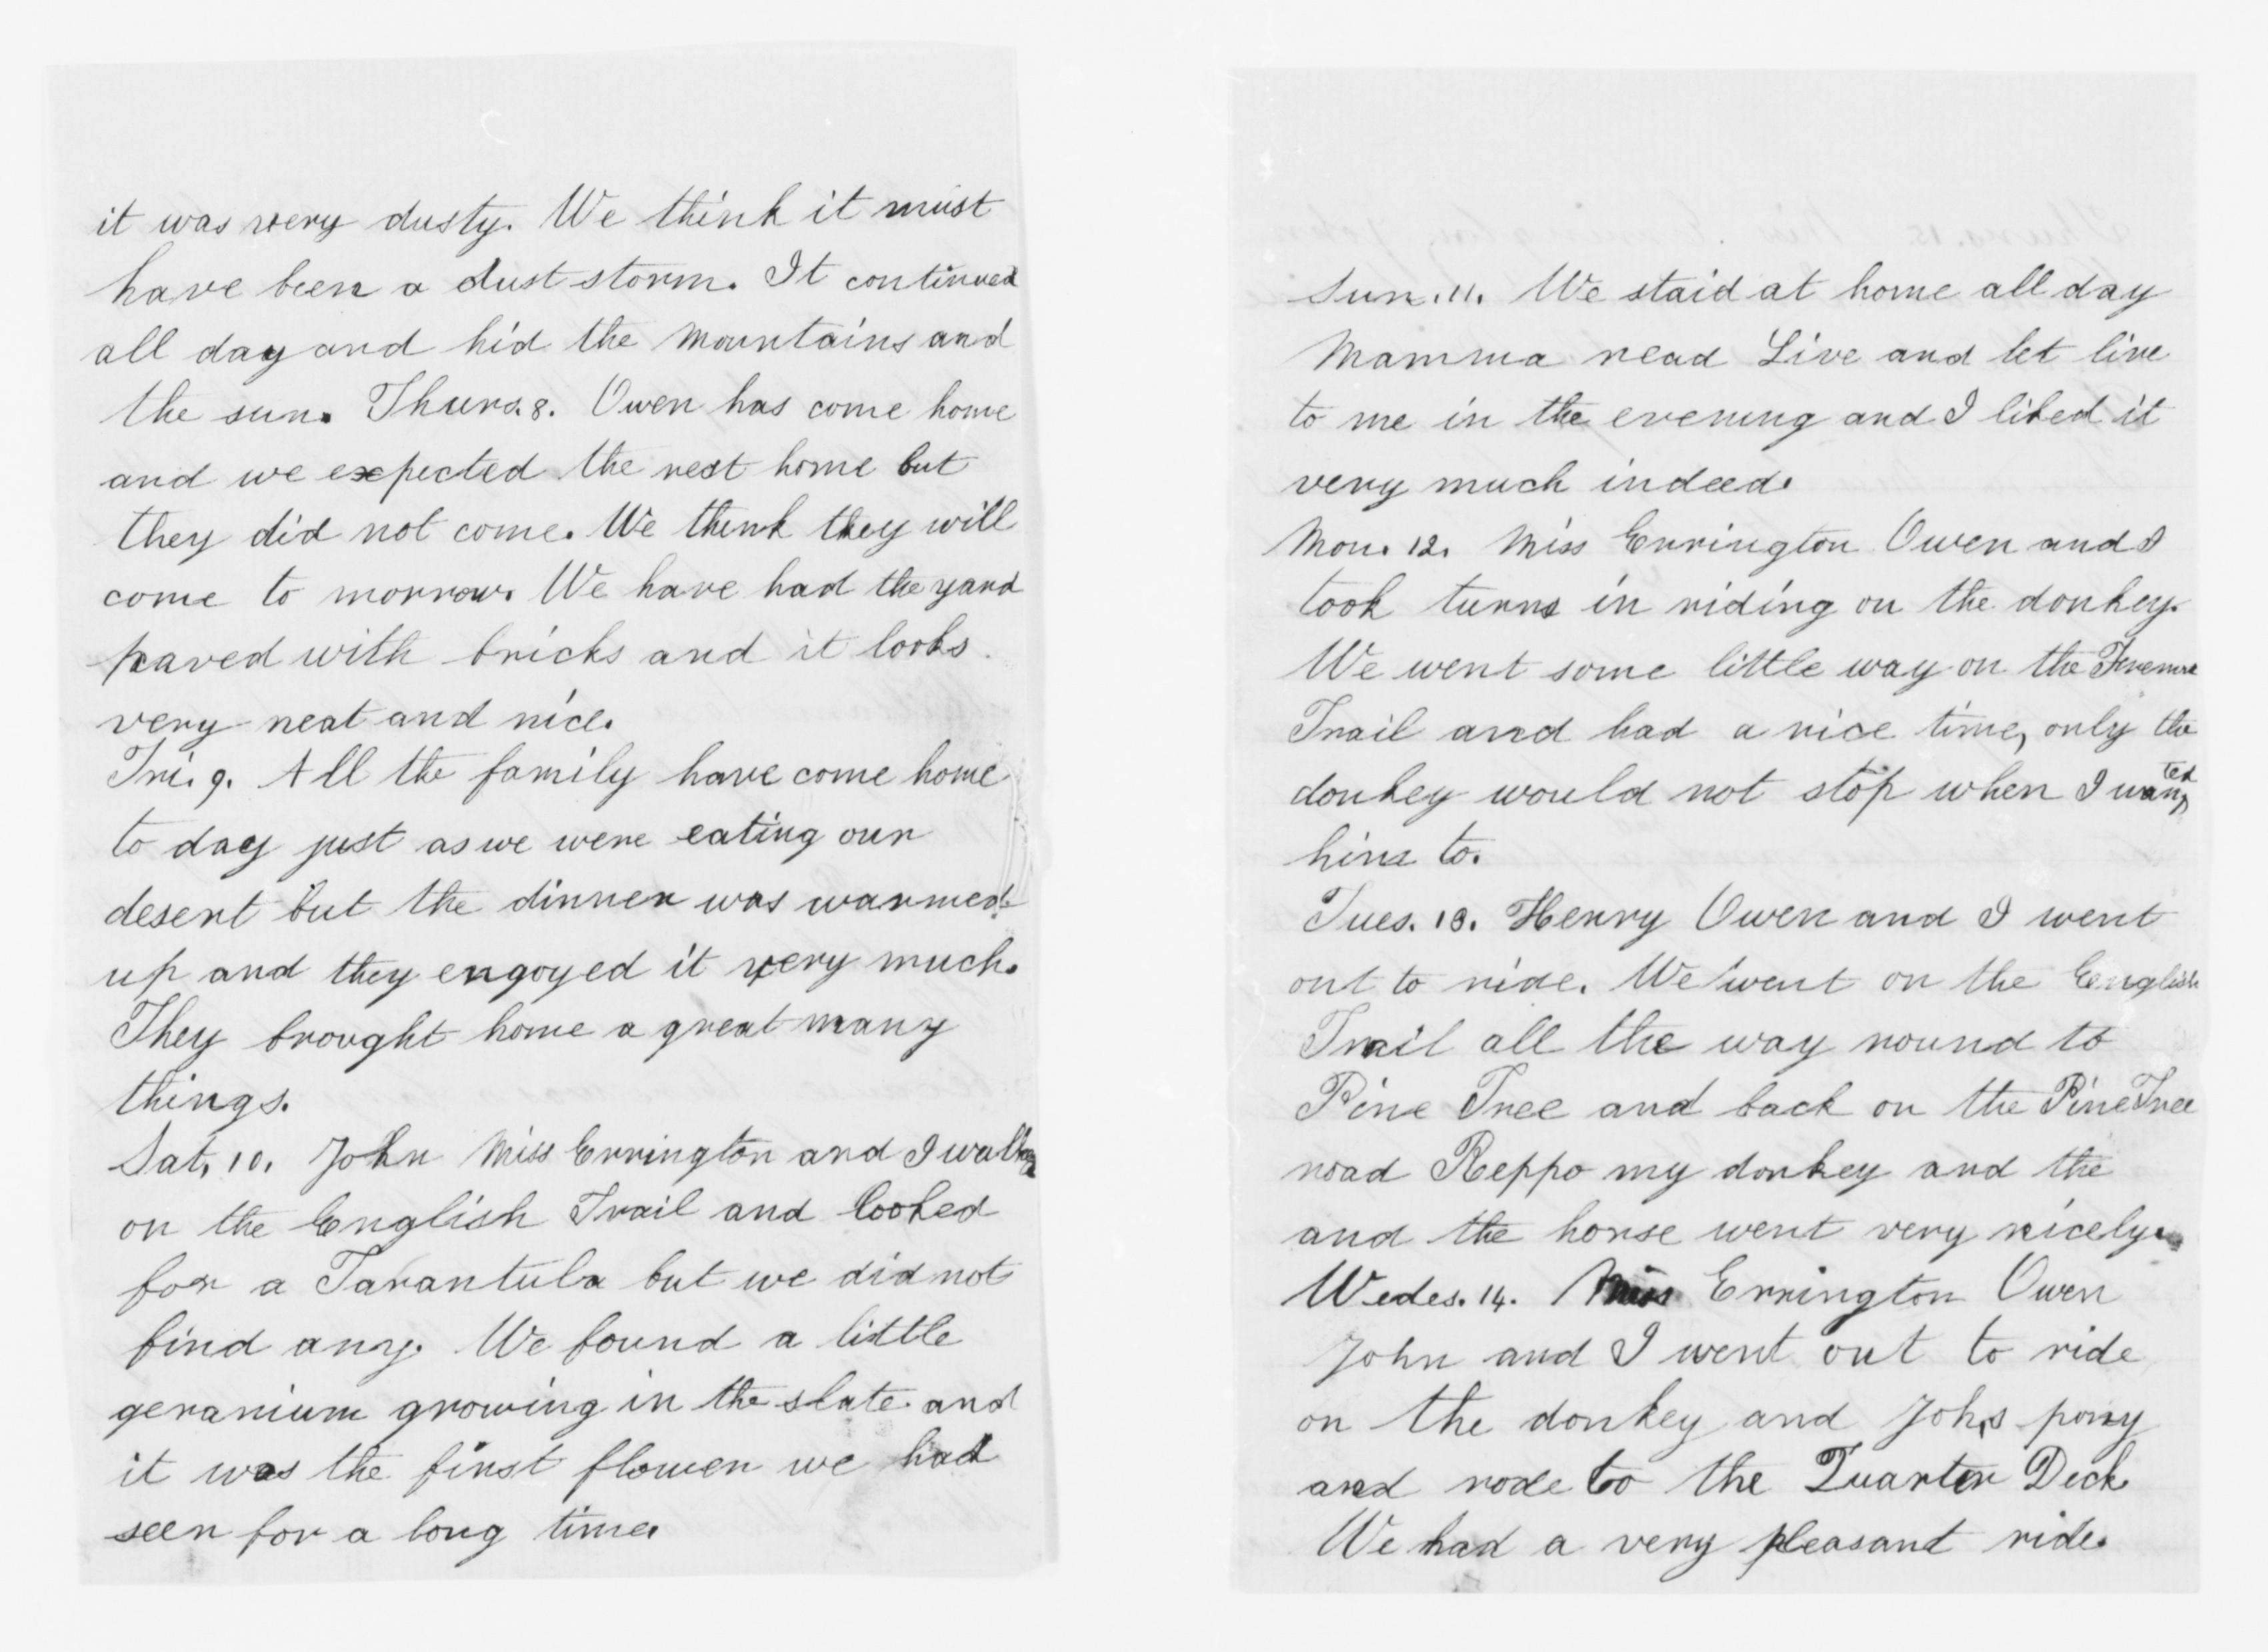 it was very dusty. We think it must
have been a dust storm. It continued
all day and hid the mountains and
the sun. Thurs. 8. Owen has come home
and we expected the rest home but
they did not come. We think they will
come to morrow. We have had the yard
paved with bricks and it looks
very neat and nice.
Fri. 9. All the family have come home
to day just as we were eating our
desert but the dinner was warmed
up and they engoyed it very much.
They brought home a great many
things.
Sat. 10. John Miss Errington and I walked
on the English Trail and looked
for a Tarantula but we did not
find any. We found a little
geranium growing in the slate and
it was the first flower we had
seen for a long time.
Sun. 11. We staid at home all day
Mamma read Live and let live
to me in the evening and I liked it
very much indeed.
Mon. 12. Miss Errington Owen and I
took turns in riding on the donkey.
We went some little way on the
Trail and had a nice time, only the
donkey would not stop when I wanted
him to.
Tues. 13. Henry Owen and I went
out to ride. We went on the English
Trail all the way round to
Pine Tree and back on the Pine Tree
road Beppo my donkey and the
and the horse went very nicely.
Wedes. 14. Miss Errington Owen
John and I went out to ride
on the donkey and Johs pony
and rode to the Quarter Deck
We had a very pleasant ride.